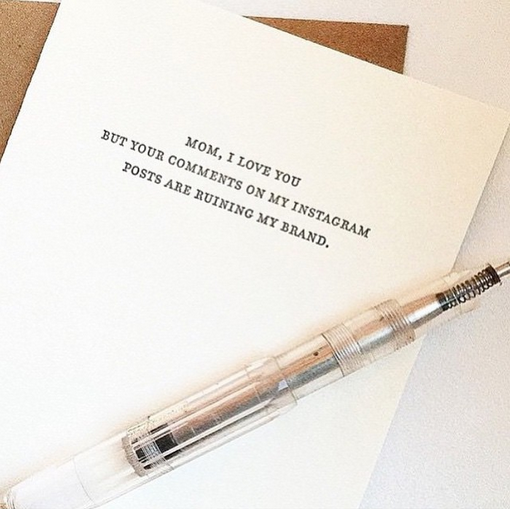 MOM, I LOVE YOU
BUT YOUR COMMENTS ON MY INSTAGRAM
POSTS ARE RUINING MY BRAND.